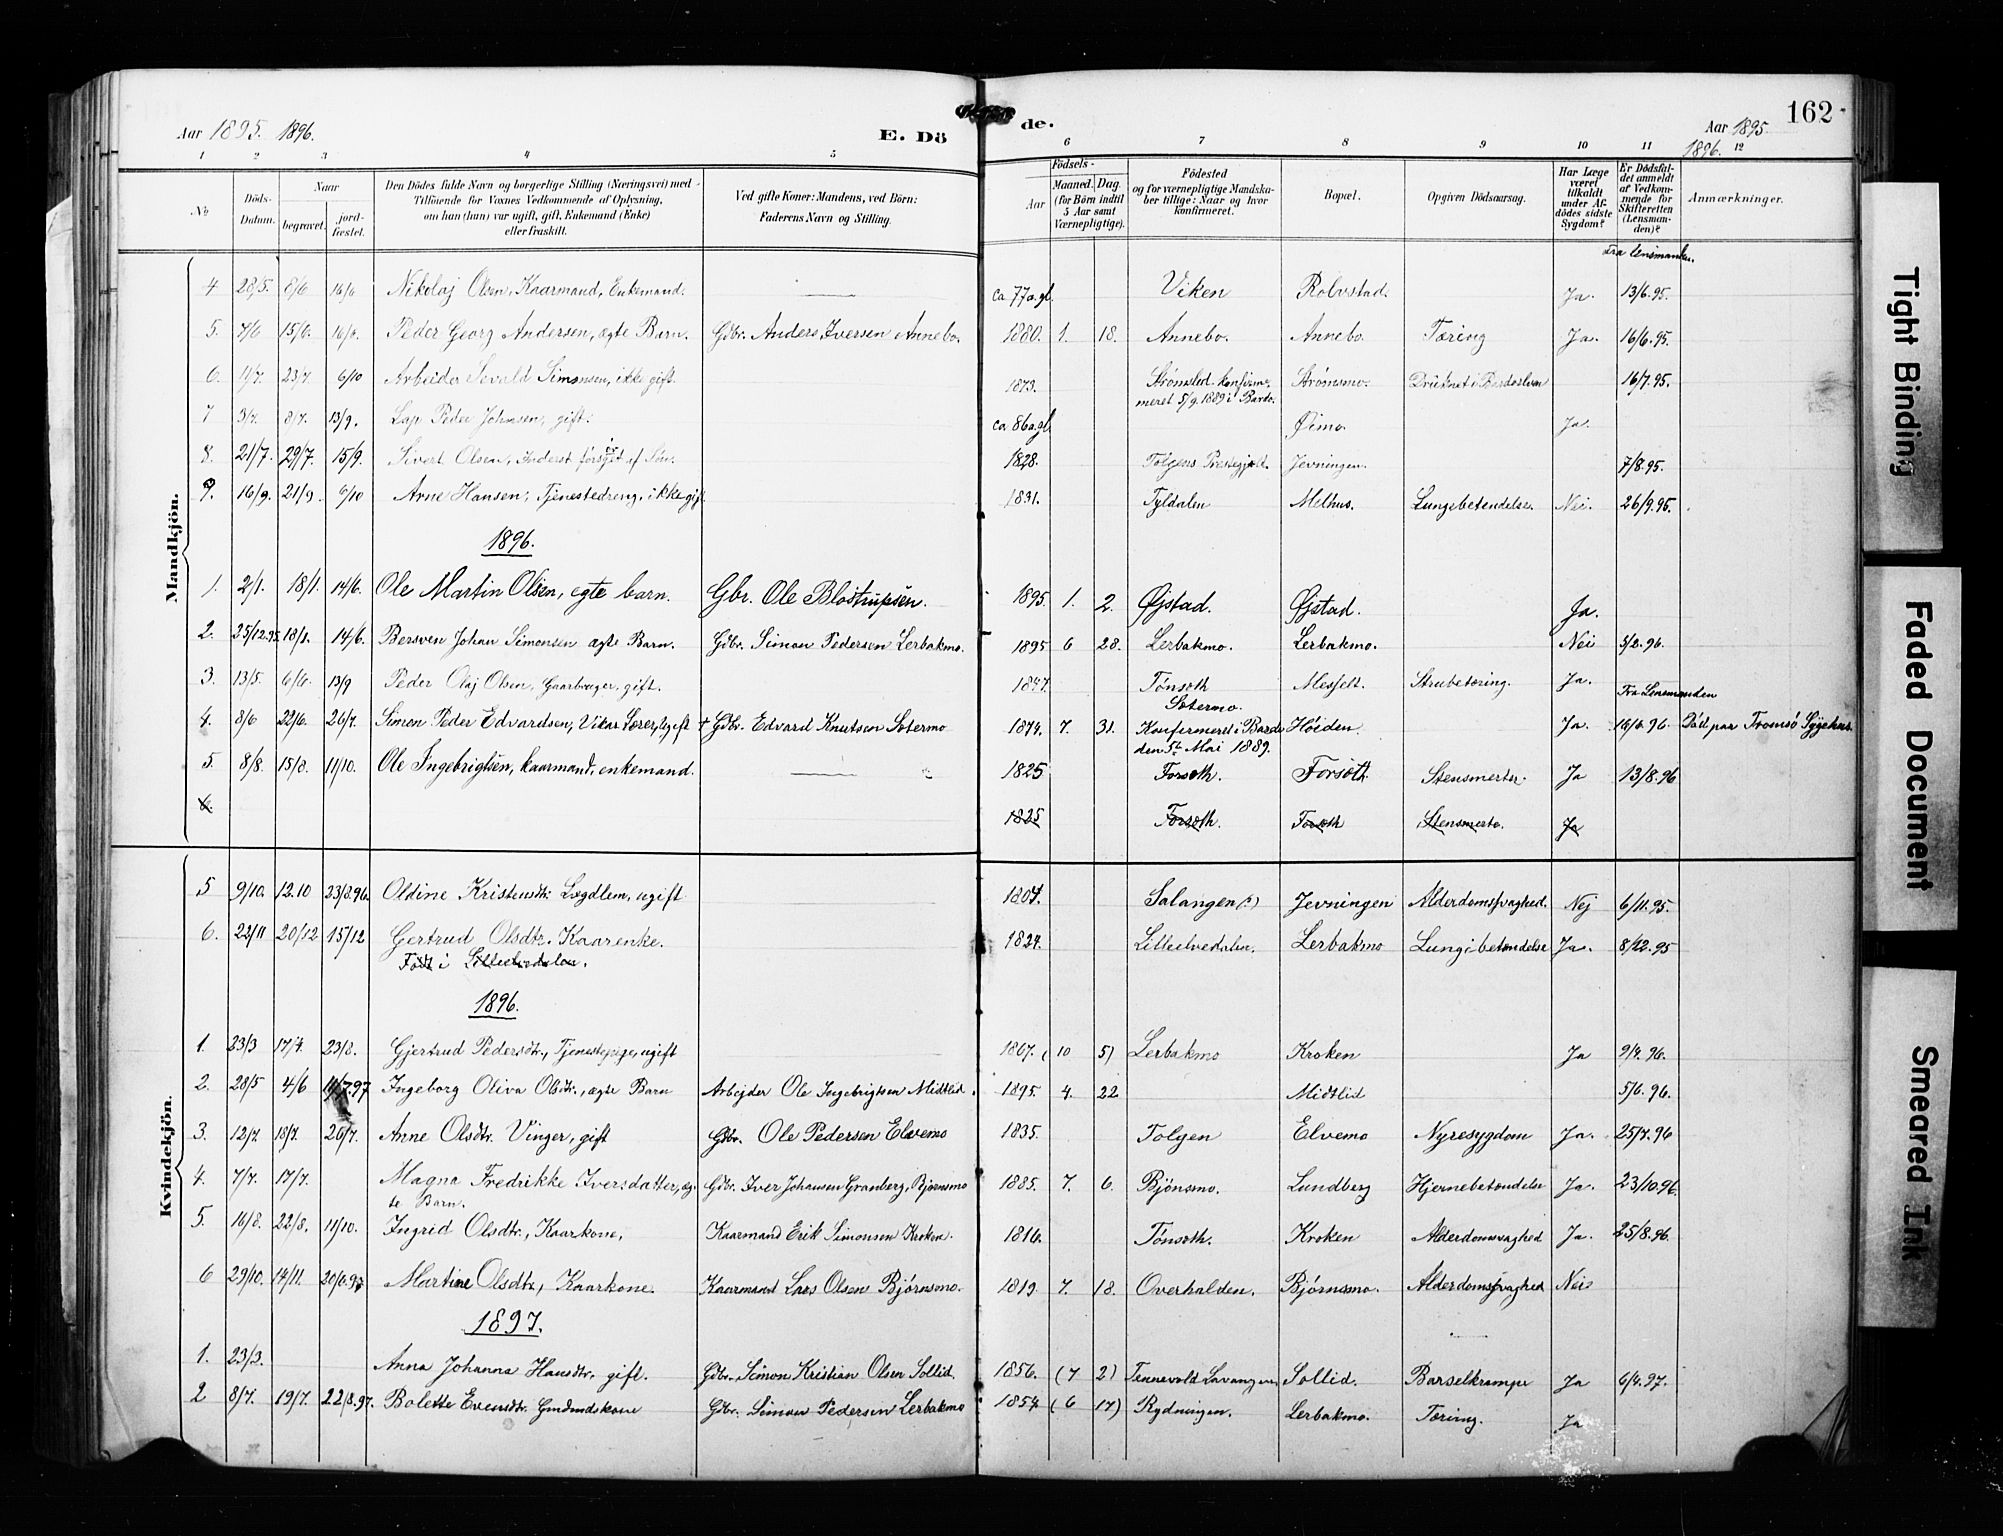 162
Aar 1895. 1896.
E. Dö de.
Aar 1895.
1896.
1 2 3 4 5 6 7 8 9 10 11 12
No
Döds-Datum.
Naar
begravet.
jord-fæstet.
Den Dödes fulde Navn og borgerlige Stilling (Næringsvei) med
Tilföiende for Voxnes Vedkommende af Oplysning,
om han (hun) var ugift, gift, Enkemand (Enke)
eller fraskilt.
Ved gifte Koner: Mandens, ved Börn:
Faderens Navn og Stilling.
Födsels-
Aar
Maaned. Dag.
(for Börn indtil
5 Aar samt
Værnepligtige).
Födested
og for værnepligtige Mandska-
ber tillige: Naar og hvor
konfirmeret.
Bopæl.
Opgiven Dödsaarsag.
Har Læge
været
tilkaldt
under Af-
dödes sidste
Sygdom?
Er Dödsfal-
det anmeldt
af Vedkom-
mende for
Skifteretten
(Lensman-
den)?
Anmærkninger.
Mandkjön.
Fra lensmanden.
4 28/5. 8/6 16/6 Nikolaj Olsen, Kaarmand, Enkemand. ca 77 a. gl. Viken Rolvstad. Ja. 13/6.95.
5. 7/6 15/6. 16/6. Peder Georg Andersen, ægte Barn. Gdbr. Anders Iversen Annebo. 1880. 1. 18. Annebo. Annebo. Tæring Ja. 16/6.95.
6. 23/7. 6/10 Arbeider Sevald Simonsen, ikke gift. 1873. Strømsted. Konfirme-
meret 5/9. 1889 i Bardo. Strømsmo. 16/7.95.
7 3/7. 8/7. 13/9. Lap Peder Johnsen, gift. ca 86 a. gl. Øimo. Ja.
8. 21/7. 29/7. 15/9. Sivert Olsen, Inderst forsørget af Søn. 1828. Tolgens Præstegjeld. Jevningen. 7/8.95.
9. 16/9. 21/9. 6/10 Arne Hansen, Tjenestedreng, ikke gift 1831. Tyldalen Melhus. Lungebetendelse. Nei. 26/9.95.
1896.
1. 2/1. 18/1. 14/6. Ole Martin Olsen, egte barn. Gbr. Ole Blostrupsen. 1895. 1. 2. Øjstad. Øjstad. Ja.
2. 25/12.95. 18/1. 14/6. Bersven Johan Simonsen ægte Barn. Gdbr. Simon Pedersen Lerbakmo. 1895 6 28. Lerbakmo. Lerbakmo. Nei 3/2.96.
3. 13/5. 6/6. 13/9 Peder Olaj Olsen, Gaarbruger, gift. 1847. Tønseth Mesfelt. Strubetæring. Ja. Fra Lensmanden
4. 8/6 22/6. 26/7. Simon Peder Edvardsen, Vikar Lærer, Ugift + Gdbr. Edvard Knutsen Sætermo 1874. 7. 31. Sætermo.
Konfirmeret i Bardo
den 5te Mai 1889. Høiden. Ja. 16/6.96. Død paa Tromsö Sygehus.
5. 8/8. 15/8. 11/10. Ole Ingebrigtsen, kaarmand, enkemand. 1825 Forseth. Forseth. Stensmerter. Ja 13/8.96
6. 1825 Forseth. Forseth Stensmerte. Ja
Kvindekjön.
5 9/10. 12.10 23/8.96. Oldine Kristensdtr. Lægdlem, ugift 1807. Salangen (?) Jevningen Alderdomssvaghed. Nej 6/11.95.
6. 22/11 20/12 15/12 Gertrud Olsdtr. Kaarenke.
Født i Lilleelvedalen. 1824. Lilleelvedalen. Lerbakmo Lungebetendelse Ja. 8/12.95
1896.
1. 23/3 17/4. 23/8. Gjertrud Pedersdtr., Tjenestepige, ugift 1867. (10 5) Lerbakmo Kroken Ja 9/4.96.
2. 28/5 4/6 11/7.97 Ingeborg Oliva Olsdtr., ægte Barn Arbejder Ole Ingebrigtsen Midtlid. 1895. 4. 22 Midtlid 5/6.96.
3. 12/7. 18/7. 26/7. Anne Olsdtr. Vinger, gift Gdbr. Ole Pedersen Elvemo 1835. Tolgen Elvemo Nyresygdom Ja. 25/7.96
4. 7/7. 17/7. Magna Fredrikke Iversdatter, æg-
te Barn. Gdbr. Iver Johansen Granberg, Bjørnsmo 1885. 7. 6. Bjönsmo. Lundberg Hjernebetendelse Ja. 23/10.96.
5. 16/8. 22/8. 11/10. Ingrid Olsdtr., Kaarkone, Kaarmand Erik Simonsen Kroken. 1816. Tönseth. Kroken Alderdomssvaghed Ja. 25/8.96.
6 29/10. 14/11. 20/6.97 Martine Olsdtr, Kaarkone. Kaarmand Lars Olsen Bjørnsmo. 1819. 7. 18. Overhalden. Bjørnsmo. Alderdomssvaghed Nei
1897.
1. 23/3. Anna Johanna Hansdtr. gift. Gdbr. Simon Kristian Olsen Sollid. 1856. (7 2) Tennevold Lavangen Sollid. Barselkrampe Ja 6/4.97.
2 8/7. 19/7. 22/8.97. Bolette Evensdtr. Gmdmdskone Gdbr. Simon Pedersen Lerbakmo 1854 (6 17) Rydningen. Lerbakmo. Tæring. Ja
Tight Binding
Faded Document
Smeared Ink